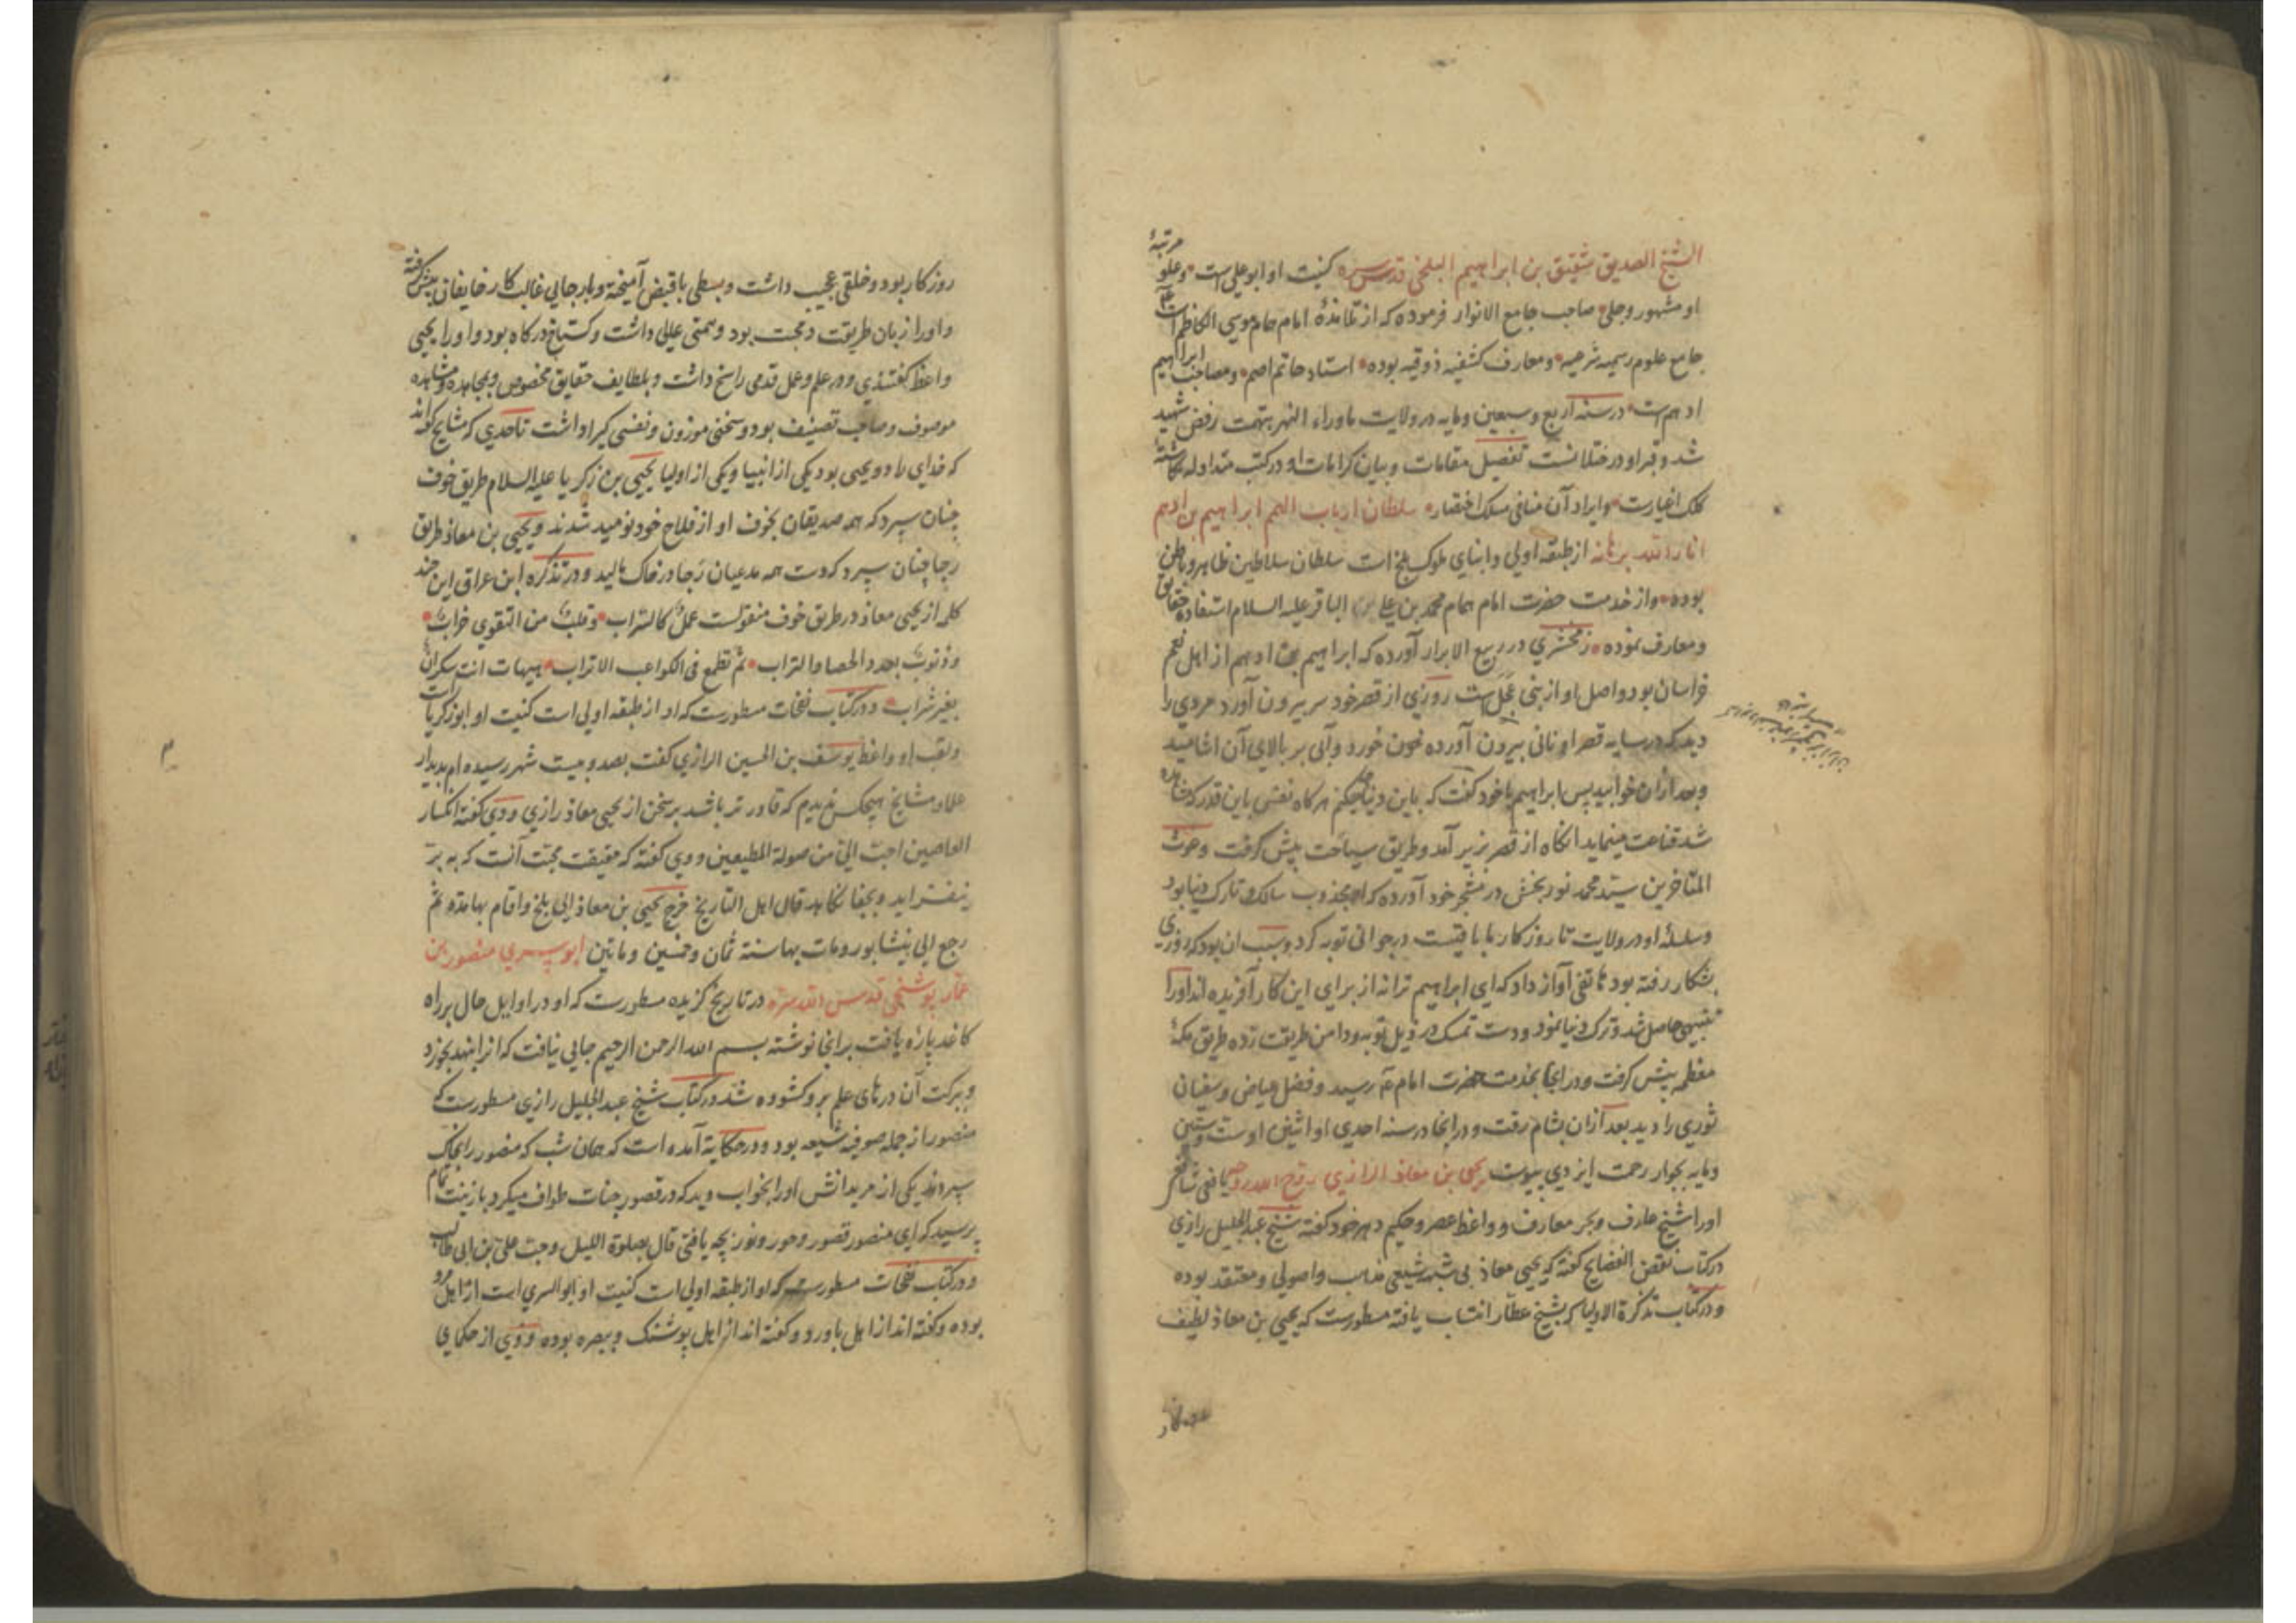 الشیخ الصدیق شقیق بن ابراهیم البلخی قدس سره کنیت او ابو علی است وعلو مرتبهٔ
او مشهور وجلی صاحب جامع الانوار فرموده که از تلامذهٔ امام همام موسی الکاظم است
جامع علوم رسمیه شرعیه ومعارف کشفیه ذوقیه بوده استاد حاتم اصم ومصاحب ابراهیم
ادهم است درسنه اربع وسبعین ومایه در ولایت ماوراء النهر بتهمت رفض شهید
شد وقبر او در ختلانست تفصیل مقامات وبیان کرامات او در کتب متداوله نکاشتهٔ
کلک اخیارست وایراد آن منافی مسلک اختصار سلطان ارباب الهمم ابراهیم بن ادهم
انار الله برهانه از طبقه اولی وابنای ملوک بلخ است سلطان سلاطین ظاهر وباطن
بوده واز خدمت حضرت امام همام محمد بن علی الباقر علیه السلام استفاده حقایق
ومعارف نموده زمخشری در ربیع الابرار آورده که ابراهیم بن ادهم از اهل نعم
خراسان بود واصل او از بنی عجل ست روزی از قصر خود سر بیرون آورد مردی را
دید که در سایه قصر او نانی بیرون آورده خورد وآبی بر بالای آن اشامید
وبعد ازان خوابید پس ابراهیم با خود گفت که باین دنیا چکنم هرکاه نفس باین قدر که مشاهده
شد قناعت مینماید انکاه از قصر بزیر آمد وطریق سیاحت پیش کرفت وغوث
المتاخرین سید محمد نوربخش در مشجر خود آورده که او مجذوب سالک وتارک دنیا بود
وسلسلهٔ او در ولایت تا روزکار ما باقیست در جوانی توبه کرد وسبب ان بود که روزی
بشکار رفته بود هاتفی آواز داد که ای ابراهیم ترا نه از برای این کار آفریده اند اورا
تنبیهی حاصل شد وترک دنیا نمود ودست تمسک در ذیل توبه ودامن طریقت زده طریق مکهٔ
معظمه پیش کرفت ودر انجا بخدمت حضرت امام رسید وفضل عیاض وسفیان
ثوری را دید بعد ازان بشام رفت ودر انجا در سنه احدی او اثنین اوست وستین
ومایه بجوار رحمت ایزدی پیوست یحیی بن معاذ الرازی روح الله روحه یافعی شافعی
اورا شیخ عارف وبحر معارف وواعظ عصر وحکیم دهر خود کفته شیخ عبد الجلیل رازی
درکتاب نقض الفضایح کفته که یحیی معاذ بی شبهه شیعی مذهب واصولی ومعتقد بوده
ودرکتاب تذکرة الاولیا که بشیخ عطار انتساب یافته مسطورست که یحیی بن معاذ لطیف
روزکار بود وخلقی عجیب داشت وبسطی باقبض آمیخته ورجایی غالب کار خایفان پیش کرفته
واورا زبان طریقت ومحبت بود وهمتی عالی داشت وکستاخ درکاه بود واورا یحیی
واعظ کفتندی ودر علم وعمل قدمی راسخ داشت وبلطایف حقایق مخصوص وبمجاهده ومشاهده
موصوف وصاحب تصنیف بود وسخنی موزون ونفسی کیرا داشت تاحدی که مشایخ کفته اند
که خدای را دو یحیی بود یکی از انبیا ویکی از اولیا یحیی بن زکریا علیه السلام طریق خوف
چنان سپرد که همه صدیقان بخوف او از فلاح خود نومید شدند ویحیی بن معاذ طریق
رجا چنان سپرد که دست همه مدعیان رجا در خاک مالید ودر تذکره ابن عراق این چند
کلمه از یحیی معاذ در طریق خوف منقولست عمل کالسراب وقلب من التقوی خراب
وذنوب بعدد الحصا والتراب ثم تطمع فی الکواعب الاتراب هیهات انت سکران
بغیر شراب ودرکتاب نفحات مسطورست که او از طبقه اولی است کنیت او ابوزکریاست
ولقب او واعظ یوسف بن الحسین الرازی کفت بصد وبیست شهر رسیده ام بدیدار
علما ومشایخ هیچکس ندیدم که قادرتر باشد بر سخن از یحیی معاذ رازی ووی کفته انکسار
العاصین احب الی من صولة المطیعین ووی کفته که حقیقت محبت آنست که به بر
نیفزاید وبجفا نکاهد قال اهل التاریخ خرج یحیی بن معاذ الی بلخ واقام بها مدة ثم
رجع الی نیشابور ومات بها سنة ثمان وخمسین وماتین ابو سری منصور بن
عمار پوشنجی قدس الله سره در تاریخ کزیده مسطورست که او در اوایل حال بر راه
کاغد پارهٔ یافت بر انجا نوشته بسم الله الرحمن الرحیم جایی نیافت که انرا بنهد بخورد
وببرکت آن درهای علم برو کشوده شد درکتاب شیخ عبد الجلیل رازی مسطورست که
منصور از جمله صوفیه شیعه بود ودر حکایة آمده است که همان شب که منصور را بخاک
سپردند یکی از مریدانش اورا بخواب دید که در قصور جنات طواف میکرد با زینت تمام
پرسید که ای منصور قصور وحور ونور بچه یافتی قال بصلوة اللیل وحب علی بن ابی طالب
ودرکتاب نفحات مسطورست که او از طبقه اولی است کنیت او ابو السری است از اهل مرو
بوده وکفته اند از اهل باورد وکفته اند از اهل پوشنک وببصره بوده ووی از حکمای